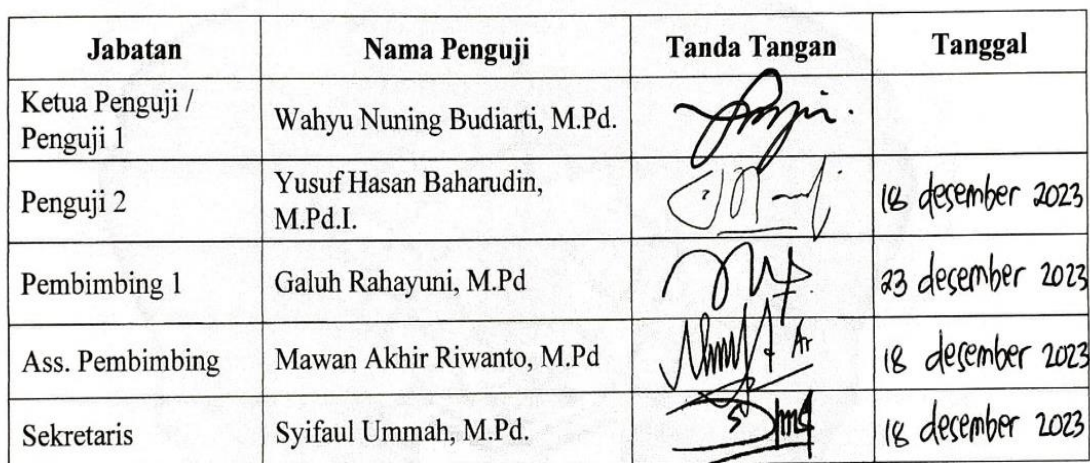 Jabatan Nama Penguji Tanda Tangan Tanggal
Ketua Penguji /
Penguji 1 Wahyu Nuning Budiarti, M.Pd.
Penguji 2 Yusuf Hasan Baharudin,
M.Pd.I. 18 desember 2023
Pembimbing 1 Galuh Rahayuni, M.Pd 23 desember 2023
Ass. Pembimbing Mawan Akhir Riwanto, M.Pd 18 desember 2023
Sekretaris Syifaul Ummah, M.Pd. 18 desember 2023